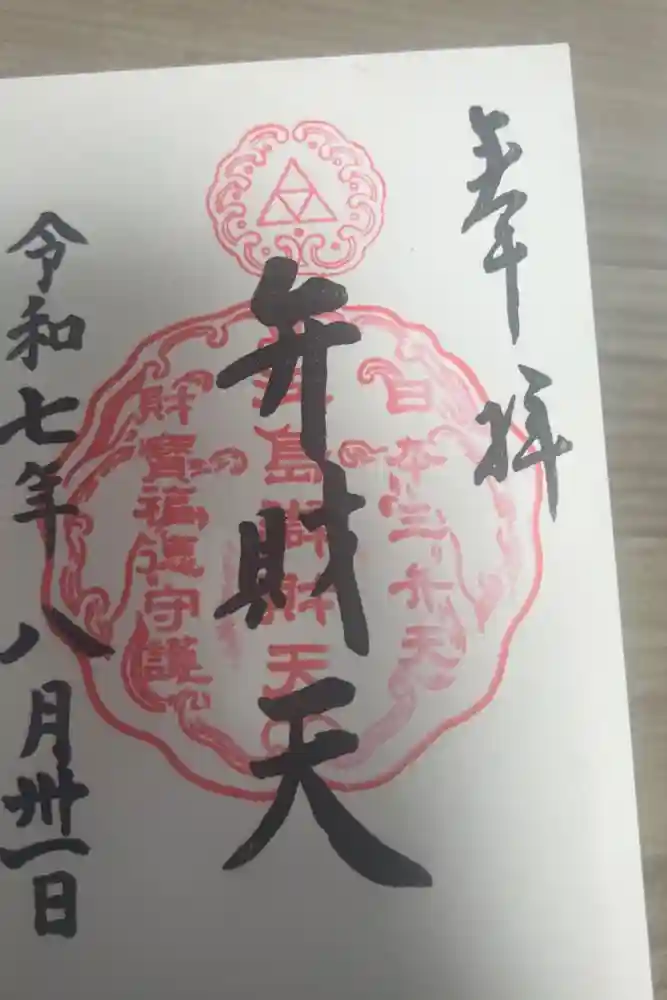 奉拝
弁財天
日本三弁天
島辨財天
財寶福徳守護
令和七年八月卅一日